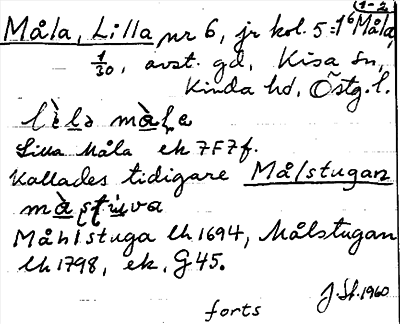 (1-2)
Måla, Lilla nr 6, jr kol. 5:1⁶ Måla,
1/30, avst. gd, Kisa sn,
Kinda hd, Östg. l.
lìlə
Lilla Måla ek 7F7f.
Kallades tidigare Målstugan
Måhlstuga lh 1694, Målstugan
lh 1798, ek, G45.
1960
forts